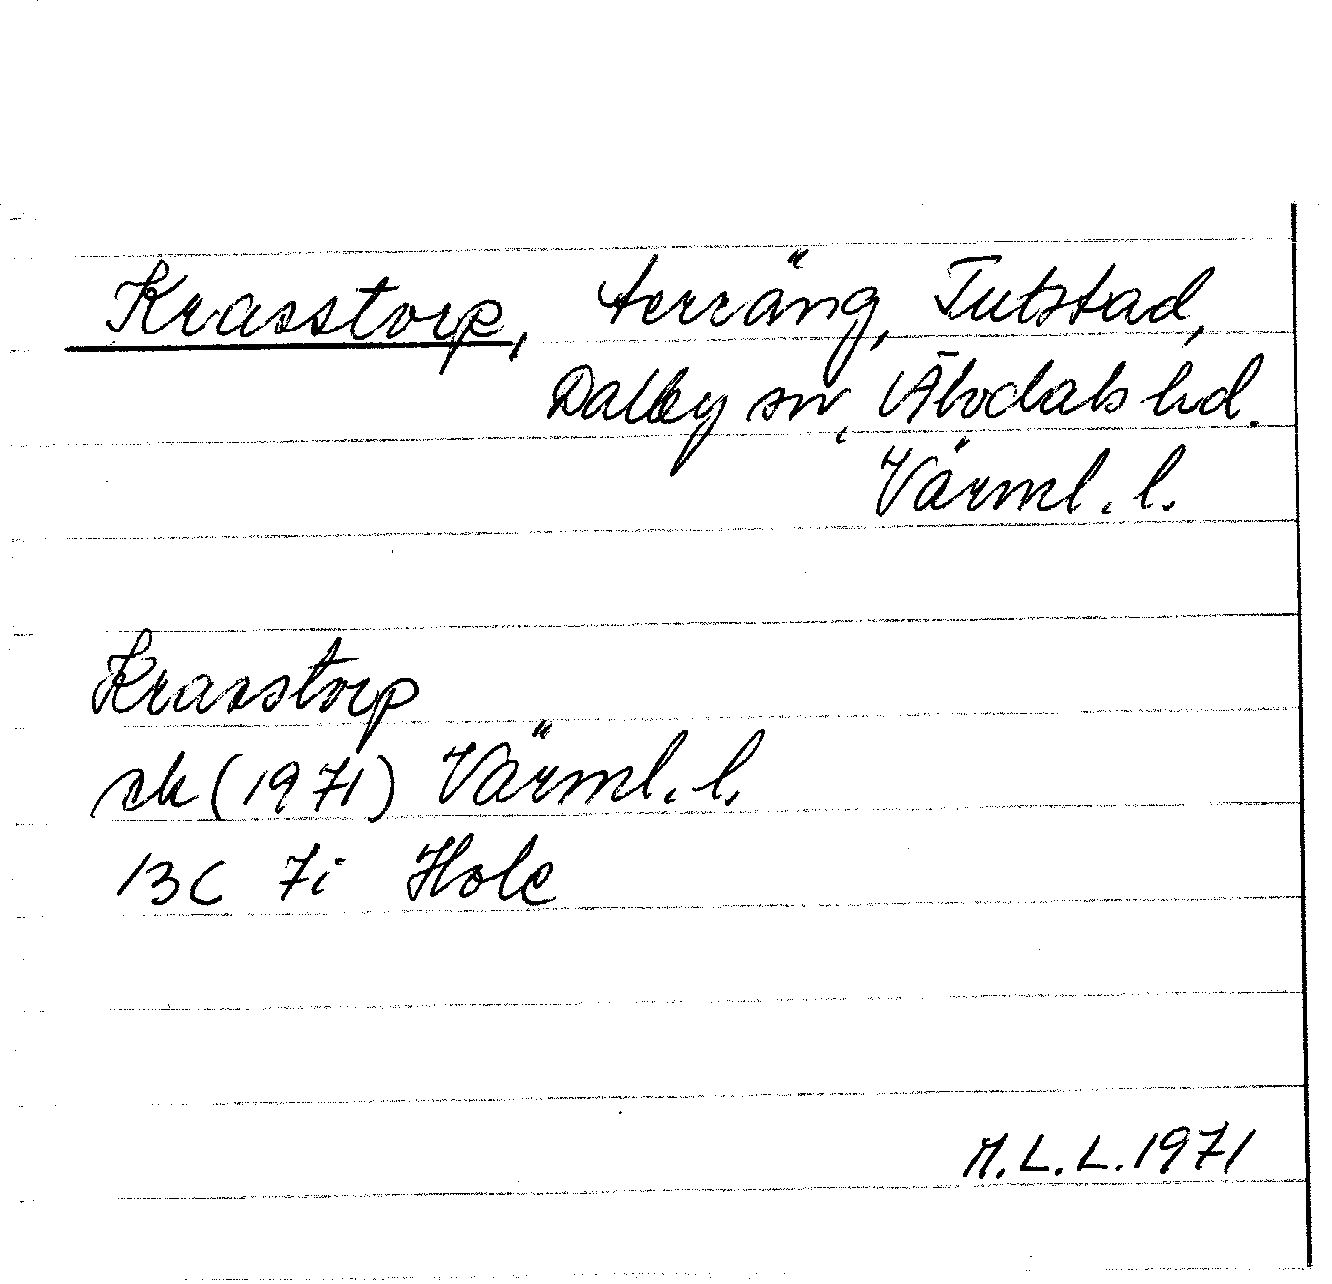 Krasstorp, terräng, Tutstad,
Dalby sn, Älvdals hd.
Värml. l.
Krasstorp
ek (1971) Värml. l.
13C 7i Hole
M.L.L. 1971